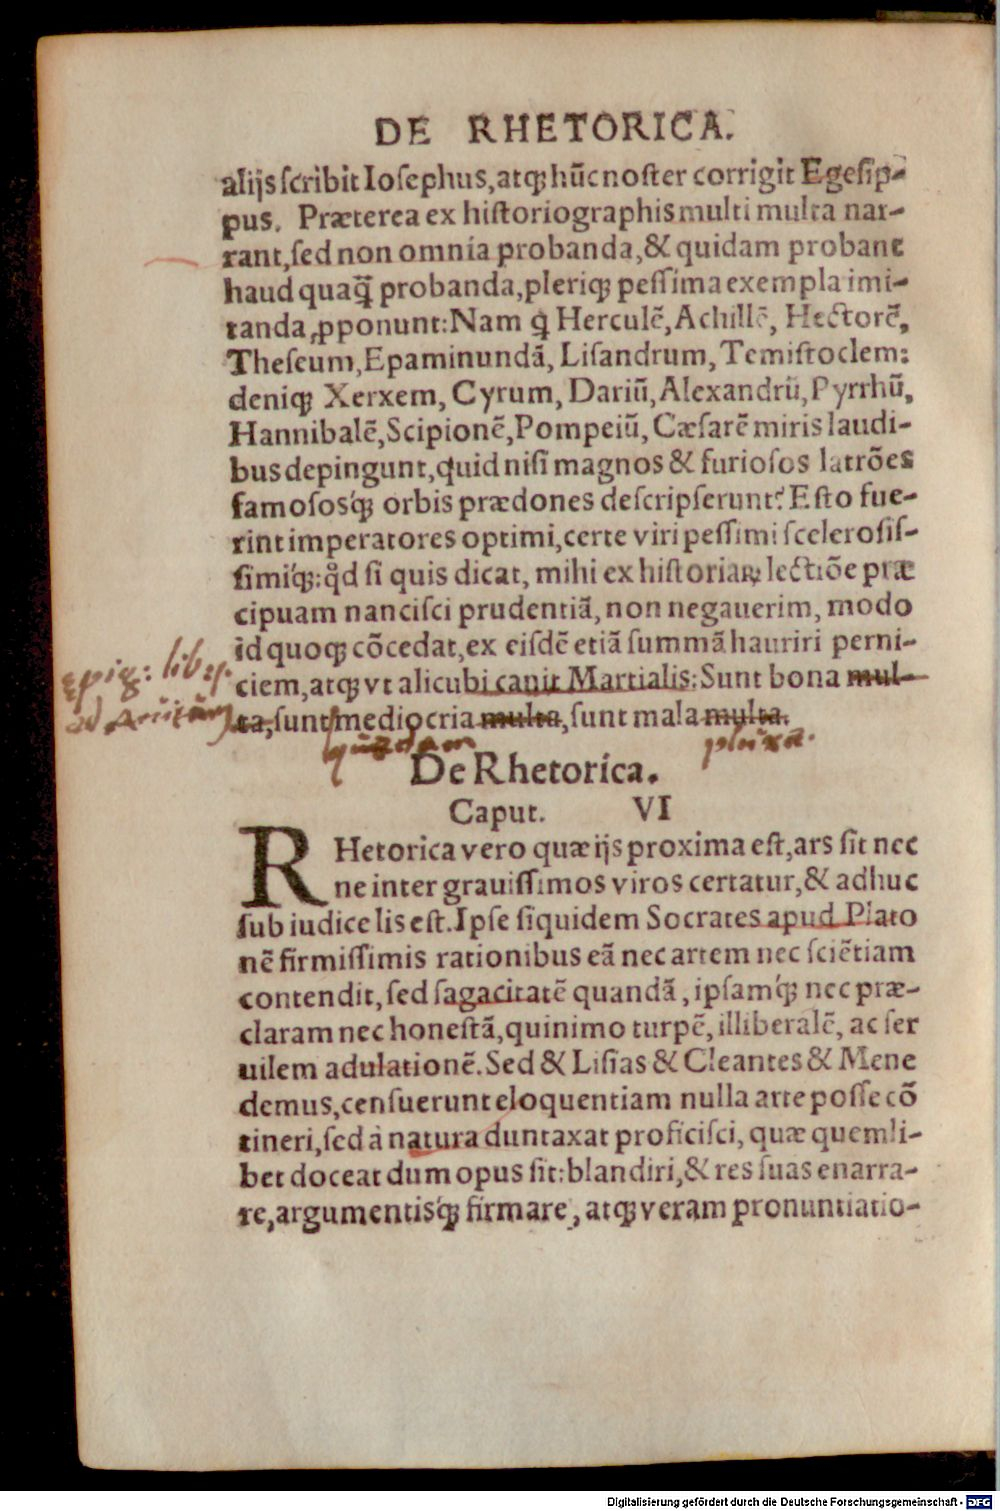 DE RHETORICA.
alijs scribit Iosephus, atqꝫ hũc noster corrigit Egesip-
pus. Præterea ex historiographis multi multa nar-
rant, sed non omnia probanda, & quidam probant
haud quaꝗ̃ probanda, pleriqꝫ pessima exempla imi-
tanda ꝓponunt: Nam ꝗ Herculẽ, Achillẽ, Hectorẽ,
Theseum, Epaminundã, Lisandrum, Temistoclem:
deniqꝫ Xerxem, Cyrum, Dariũ, Alexandrũ, Pyrrhũ,
Hannibalẽ, Scipionẽ, Pompeiũ, Cæsarẽ miris laudi-
bus depingunt, quid nisi magnos & furiosos latrões
famososqꝫ́ orbis prædones descripserunt? Esto fue-
rint imperatores optimi, certe viri pessimi scelerosis-
simiqꝫ́: qd̊ si quis dicat, mihi ex historiaꝝ lectiõe præ
cipuam nancisci prudentiã, non negauerim, modo
id quoqꝫ cõcedat, ex eisdẽ etiã summã hauriri perni-
epig: lib.
ciem, atqꝫ vt alicubi canit Martialis: Sunt bona mul-
ad Auitum
ta, sunt mediocria multa, sunt mala multa.
quædam
plura.
De Rhetorica.
Caput. VI
RHetorica vero quæ ijs proxima est, ars sit nec
ne inter grauissimos viros certatur, & adhuc
sub iudice lis est. Ipse siquidem Socrates apud Plato
nẽ firmissimis rationibus eã nec artem nec sciẽtiam
contendit, sed sagacitatẽ quandã, ipsamqꝫ́ nec præ-
claram nec honestã, quinimo turpẽ, illiberalẽ, ac ser
uilem adulationẽ. Sed & Lisias & Cleantes & Mene
demus, censuerunt eloquentiam nulla arte posse cõ
tineri, sed à natura duntaxat proficisci, quæ quemli-
bet doceat dum opus sit: blandiri, & res suas enarra-
re, argumentisqꝫ́ firmare, atqꝫ veram pronuntiatio-
Digitalisierung gefördert durch die Deutsche Forschungsgemeinschaft - DFG